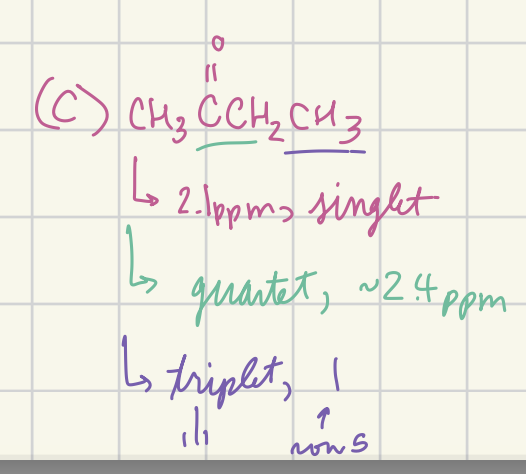 O
||
(C) CH₃CCH₂CH₃
↳ 2.1ppm, singlet
↳ quartet, ~2.4 ppm
↳ triplet, 1